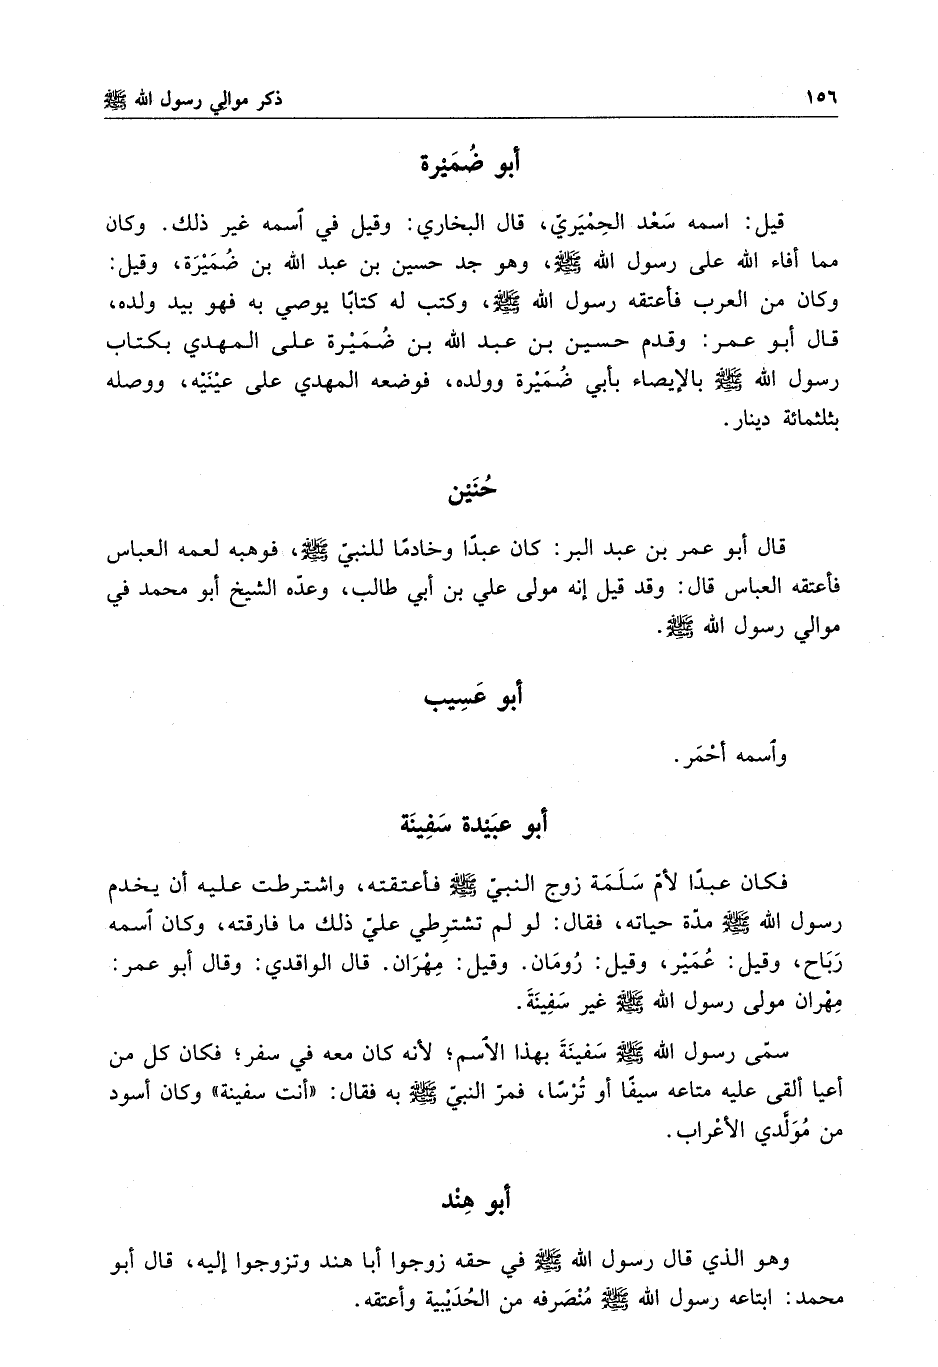 ١٥٦ ذكر موالي رسول الله ﷺ
أبو ضُمَيْرة
قيل: اسمه سَعْد الحِمْيَريّ، قال البخاري: وقيل في ٱسمه غير ذلك. وكان
مما أفاء الله على رسول الله ﷺ، وهو جد حسين بن عبد الله بن ضُمَيْرَة، وقيل:
وكان من العرب فأعتقه رسول الله ﷺ، وكتب له كتابًا يوصي به فهو بيد ولده،
قال أبو عمر: وقدم حسين بن عبد الله بن ضُمَيْرة على المهدي بكتاب
رسول الله ﷺ بالإيصاء بأبي ضُمَيْرة وولده، فوضعه المهدي على عيْنَيْه، ووصله
بثلثمائة دينار.
حُنَيْن
قال أبو عمر بن عبد البر: كان عبدًا وخادمًا للنبيّ ﷺ، فوهبه لعمه العباس
فأعتقه العباس قال: وقد قيل إنه مولى علي بن أبي طالب، وعدّه الشيخ أبو محمد في
موالي رسول الله ﷺ.
أبو عَسِيب
وٱسمه أحْمَر.
أبو عبَيْدة سَفِينَة
فكان عبدًا لأمّ سَلَمَة زوج النبيّ ﷺ فأعتقته، واشترطت عليه أن يخدم
رسول الله ﷺ مدّة حياته، فقال: لو لم تشترِطي عليّ ذلك ما فارقته، وكان ٱسمه
رَبَاح، وقيل: عُمَيْر، وقيل: رُومَان. وقيل: مِهْرَان. قال الواقدي: وقال أبو عمر:
مِهْران مولى رسول الله ﷺ غير سَفِينَةَ.
سمّى رسول الله ﷺ سَفينَةَ بهذا الٱسم؛ لأنه كان معه في سفر؛ فكان كل من
أعيا ألقى عليه متاعه سيفًا أو تُرْسًا، فمرّ النبيّ ﷺ به فقال: «أنت سفينة» وكان أسود
من مُوَلَّدي الأعْراب.
أبو هِنْد
وهو الذي قال رسول الله ﷺ في حقه زوجوا أبا هند وتزوجوا إليه، قال أبو
محمد: ابتاعه رسول الله ﷺ مُنْصَرفه من الحُدَيْبية وأعتقه.